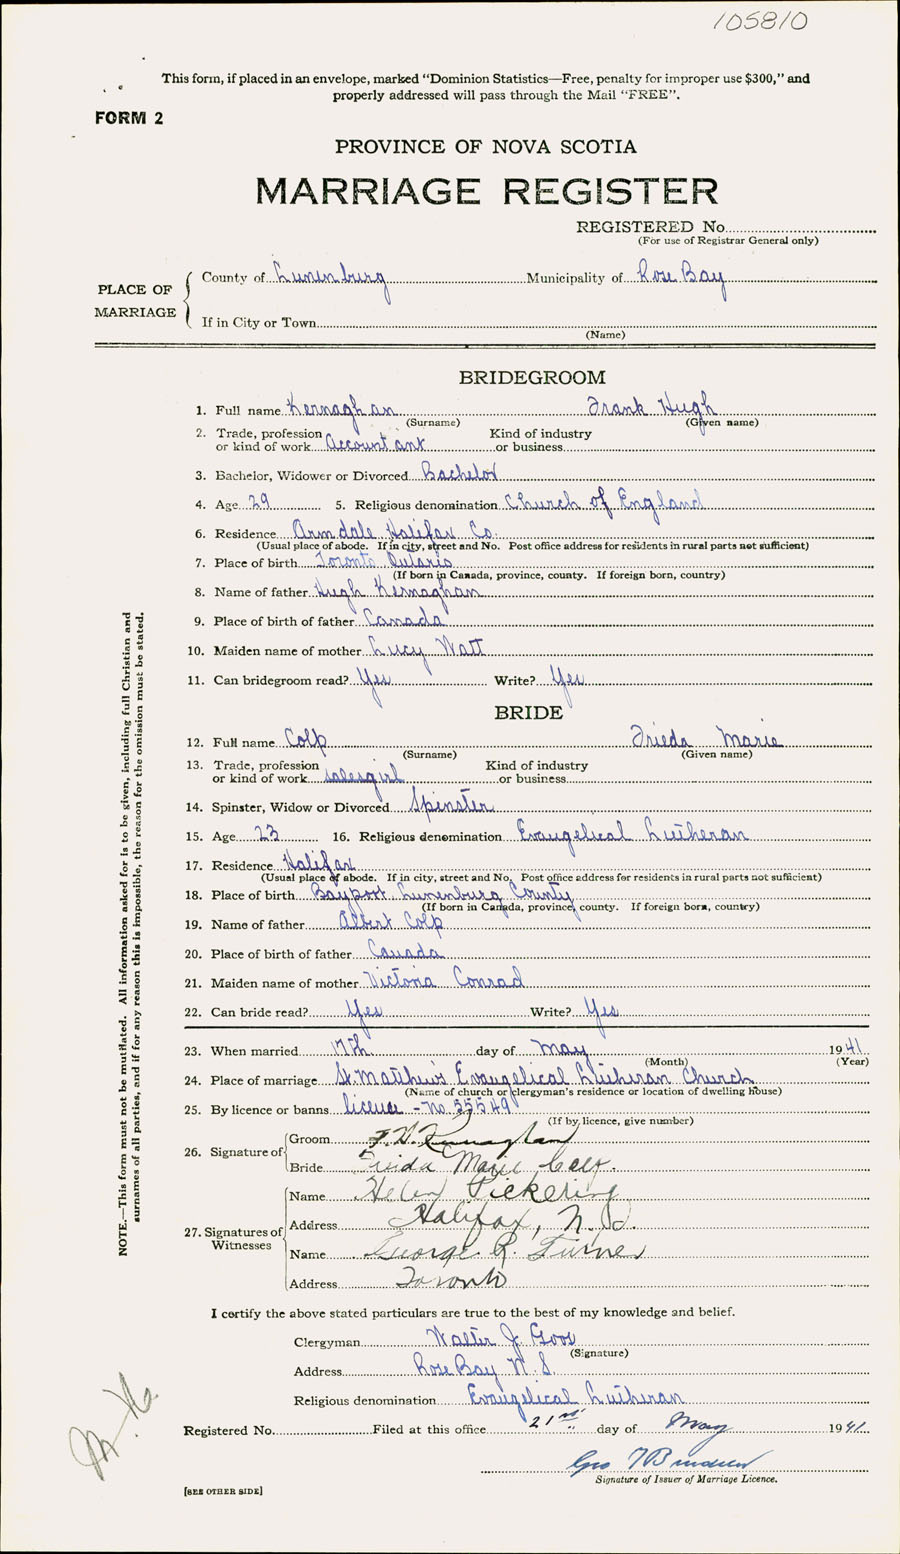 105810
This form, if placed in an envelope, marked “Dominion Statistics—Free, penalty for improper use $300,” and
properly addressed will pass through the Mail “FREE”.
FORM 2
PROVINCE OF NOVA SCOTIA
MARRIAGE REGISTER
REGISTERED No.
(For use of Registrar General only)
PLACE OF MARRIAGE
County of Lunenburg Municipality of Rose Bay
If in City or Town
(Name)
BRIDEGROOM
1. Full name Kernaghan Frank Hugh
(Surname) (Given name)
2. Trade, profession Kind of industry
or kind of work Accountant or business
3. Bachelor, Widower or Divorced Bachelor
4. Age 29 5. Religious denomination Church of England
6. Residence Armdale Halifax Co.
(Usual place of abode. If in city, street and No. Post office address for residents in rural parts not sufficient)
7. Place of birth Toronto Ontario
(If born in Canada, province, county. If foreign born, country)
8. Name of father Hugh Kernaghan
9. Place of birth of father Canada
10. Maiden name of mother Lucy Watt
11. Can bridegroom read? Yes Write? Yes
BRIDE
12. Full name Colp Frieda Marie
(Surname) (Given name)
13. Trade, profession Kind of industry
or kind of work salesgirl or business
14. Spinster, Widow or Divorced Spinster
15. Age 23 16. Religious denomination Evangelical Lutheran
17. Residence Halifax
(Usual place of abode. If in city, street and No. Post office address for residents in rural parts not sufficient)
18. Place of birth Bayport Lunenburg County
(If born in Canada, province, county. If foreign born, country)
19. Name of father Albert Colp
20. Place of birth of father Canada
21. Maiden name of mother Victoria Conrad
22. Can bride read? Yes Write? Yes
23. When married 17th day of May 1941
(Month) (Year)
24. Place of marriage St. Matthew's Evangelical Lutheran Church
(Name of church or clergyman's residence or location of dwelling house)
25. By licence or banns licence - No. 55549
(If by licence, give number)
26. Signature of
Groom F. H. Kernaghan
Bride Frieda Marie Colp.
27. Signatures of Witnesses
Name Helen Pickering
Address Halifax, N.S.
Name George R. Turner
Address Toronto
I certify the above stated particulars are true to the best of my knowledge and belief.
Clergyman Walter J. Goos
(Signature)
Address Rose Bay N.S.
Religious denomination Evangelical Lutheran
Registered No. Filed at this office 21st day of May 1941
Geo
Signature of Issuer of Marriage Licence.
[SEE OTHER SIDE]
NOTE.—This form must not be mutilated. All information asked for is to be given, including full Christian and
surnames of all parties, and if for any reason this is impossible, the reason for the omission must be stated.